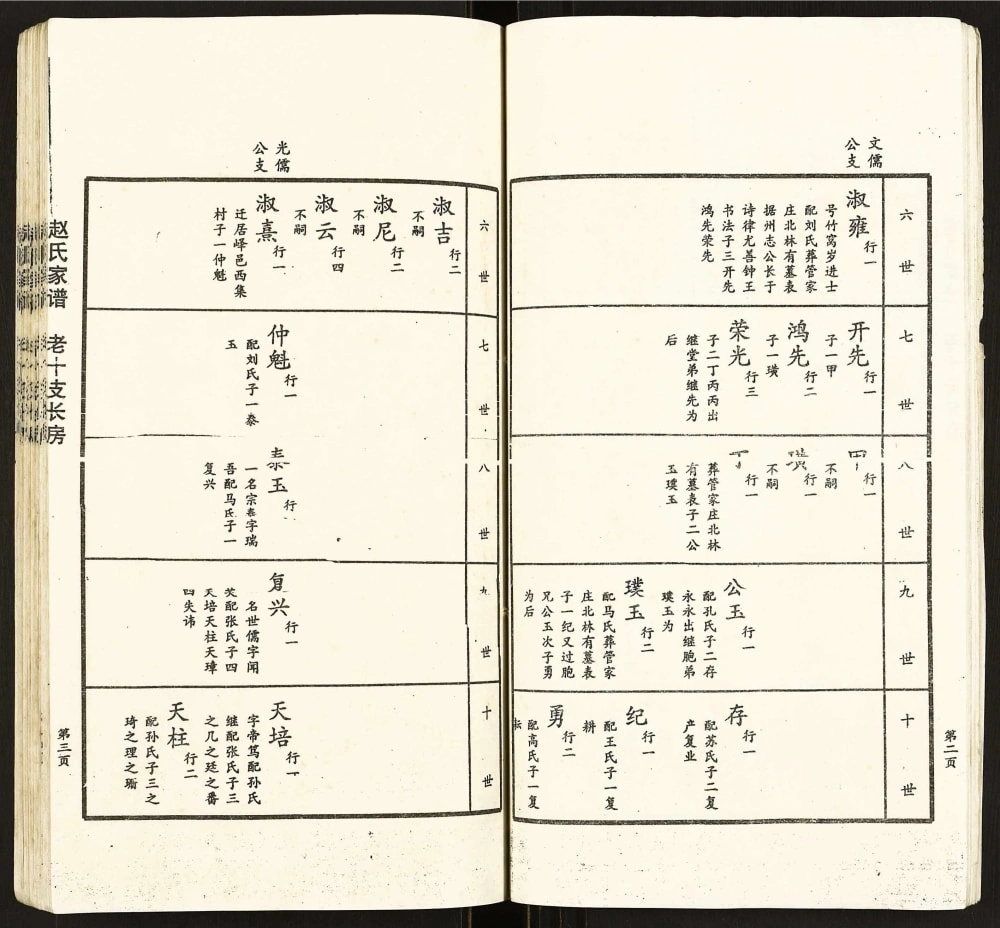 文儒
公支
六世
淑雍 行一
号竹窝岁进士
配刘氏葬管家
庄北林有墓表
据州志公长于
诗律尤善钟王
书法子三开先
鸿先荣先
七世
开先 行一
子一甲
鸿先 行二
子一璜
荣光 行三
子二丁丙丙出
继堂弟继先为
后
八世
甲 行一
不嗣
璜 行一
不嗣
丁 行一
葬管家庄北林
有墓表子二公
玉璞玉
九世
公玉 行一
配孔氏子二存
永永出继胞弟
璞玉为
璞玉 行二
配马氏葬管家
庄北林有墓表
子一纪又过胞
兄公玉次子勇
为后
十世
存 行一
配苏氏子二复
产复业
纪 行一
配王氏子一复
耕
勇 行二
配高氏子一复
耘
第二页
光儒
公支
六世
淑吉 行二
不嗣
淑尼 行二
不嗣
淑云 行四
不嗣
淑熹 行一
迁居峄邑西集
村子一仲魁
七世
仲魁 行一
配刘氏子一泰
玉
八世
泰玉 行一
一名宗泰字瑞
吾配马氏子一
复兴
九世
复兴 行一
名世儒字闻
笑配张氏子四
天培天柱天璋
四失讳
十世
天培 行一
字帝笃配孙氏
继配张氏子三
之几之廷之番
天柱 行二
配孙氏子三之
琦之理之珊
第三页
赵氏家谱 老十支长房